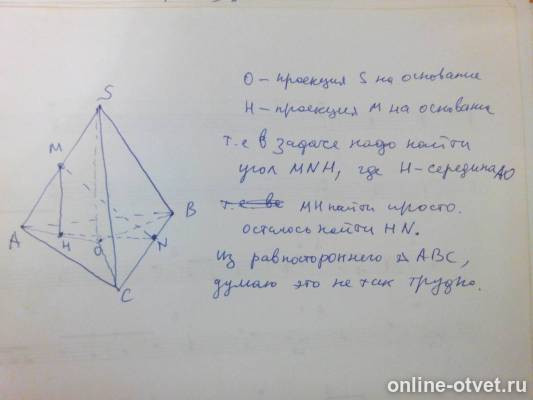 S
M
A
H
O
N
B
C
O – проекция S на основание
H – проекция M на основание
т.е в задаче надо найти
угол MNH, где H – середина AO
MH найти просто.
осталось найти HN.
Из равностороннего Δ ABC,
думаю это не так трудно.
online-otvet.ru